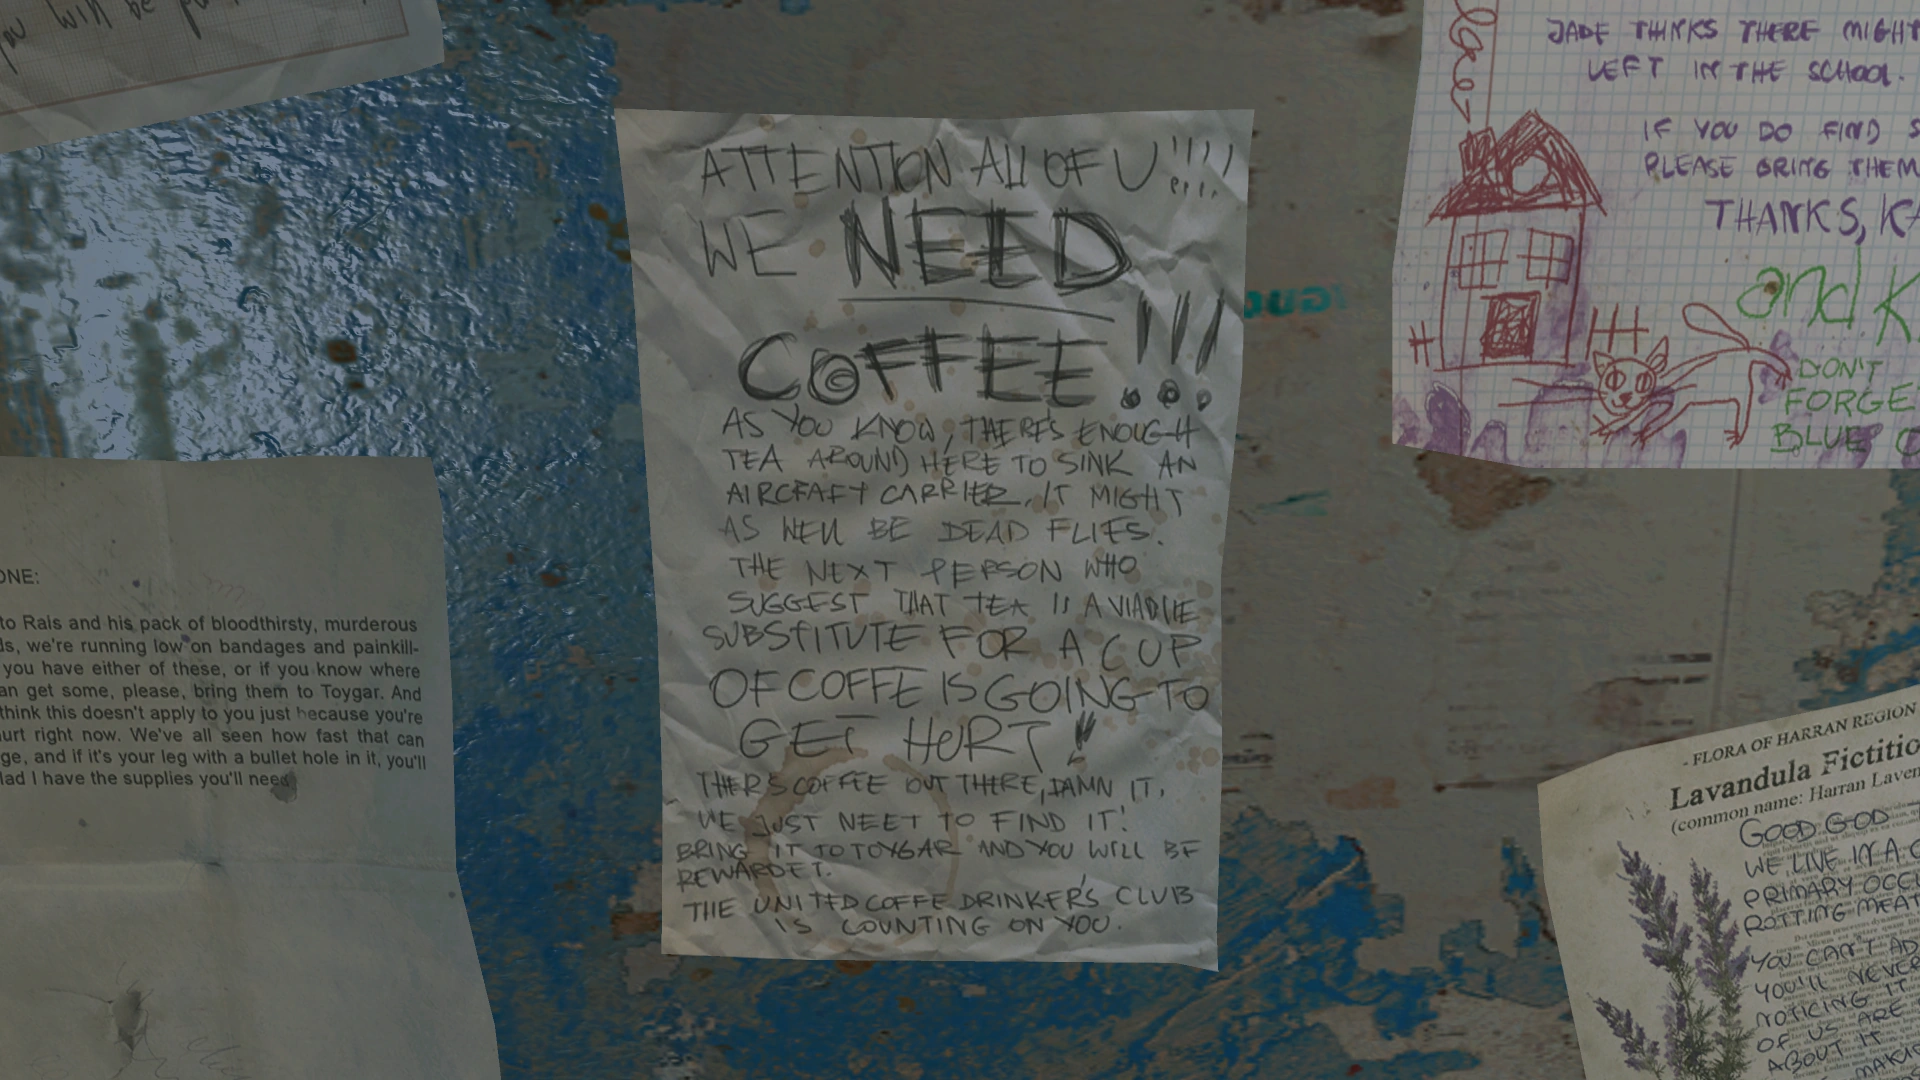 you will be
ATTENTION ALL OF U!!!!
WE NEED
COFFEE!!!
AS YOU KNOW, THERE'S ENOUGH
TEA AROUND HERE TO SINK AN
AIRCRAFT CARRIER. IT MIGHT
AS WELL BE DEAD FLIES.
THE NEXT PERSON WHO
SUGGEST THAT TEA IS A VIABLE
SUBSTITUTE FOR A CUP
OF COFFE IS GOING TO
GET HURT!
THERS COFFEE OUT THERE, DAMN IT,
WE JUST NEET TO FIND IT!
BRING IT TO TOYGAR AND YOU WILL BE
REWARDET.
THE UNITED COFFE DRINKER'S CLUB
IS COUNTING ON YOU.
JADE THINKS THERE MIGHT
LEFT IN THE SCHOOL.
IF YOU DO FIND S
PLEASE BRING THEM
THANKS, KA
and K
DON'T
FORGE
BLUE C
ONE:
to Rais and his pack of bloodthirsty, murderous
ds, we're running low on bandages and painkill-
you have either of these, or if you know where
an get some, please, bring them to Toygar. And
think this doesn't apply to you just because you're
urt right now. We've all seen how fast that can
ge, and if it's your leg with a bullet hole in it, you'll
lad I have the supplies you'll need
- FLORA OF HARRAN REGION
Lavandula Fictitio
(common name: Harran Laven
GOOD GOD
WE LIVE IN A C
PRIMARY OCCU
ROTTING MEAT
YOU CAN'T AD
YOU'LL NEVER
NOTICING IT
OF US ARE
ABOUT IT
MAKI